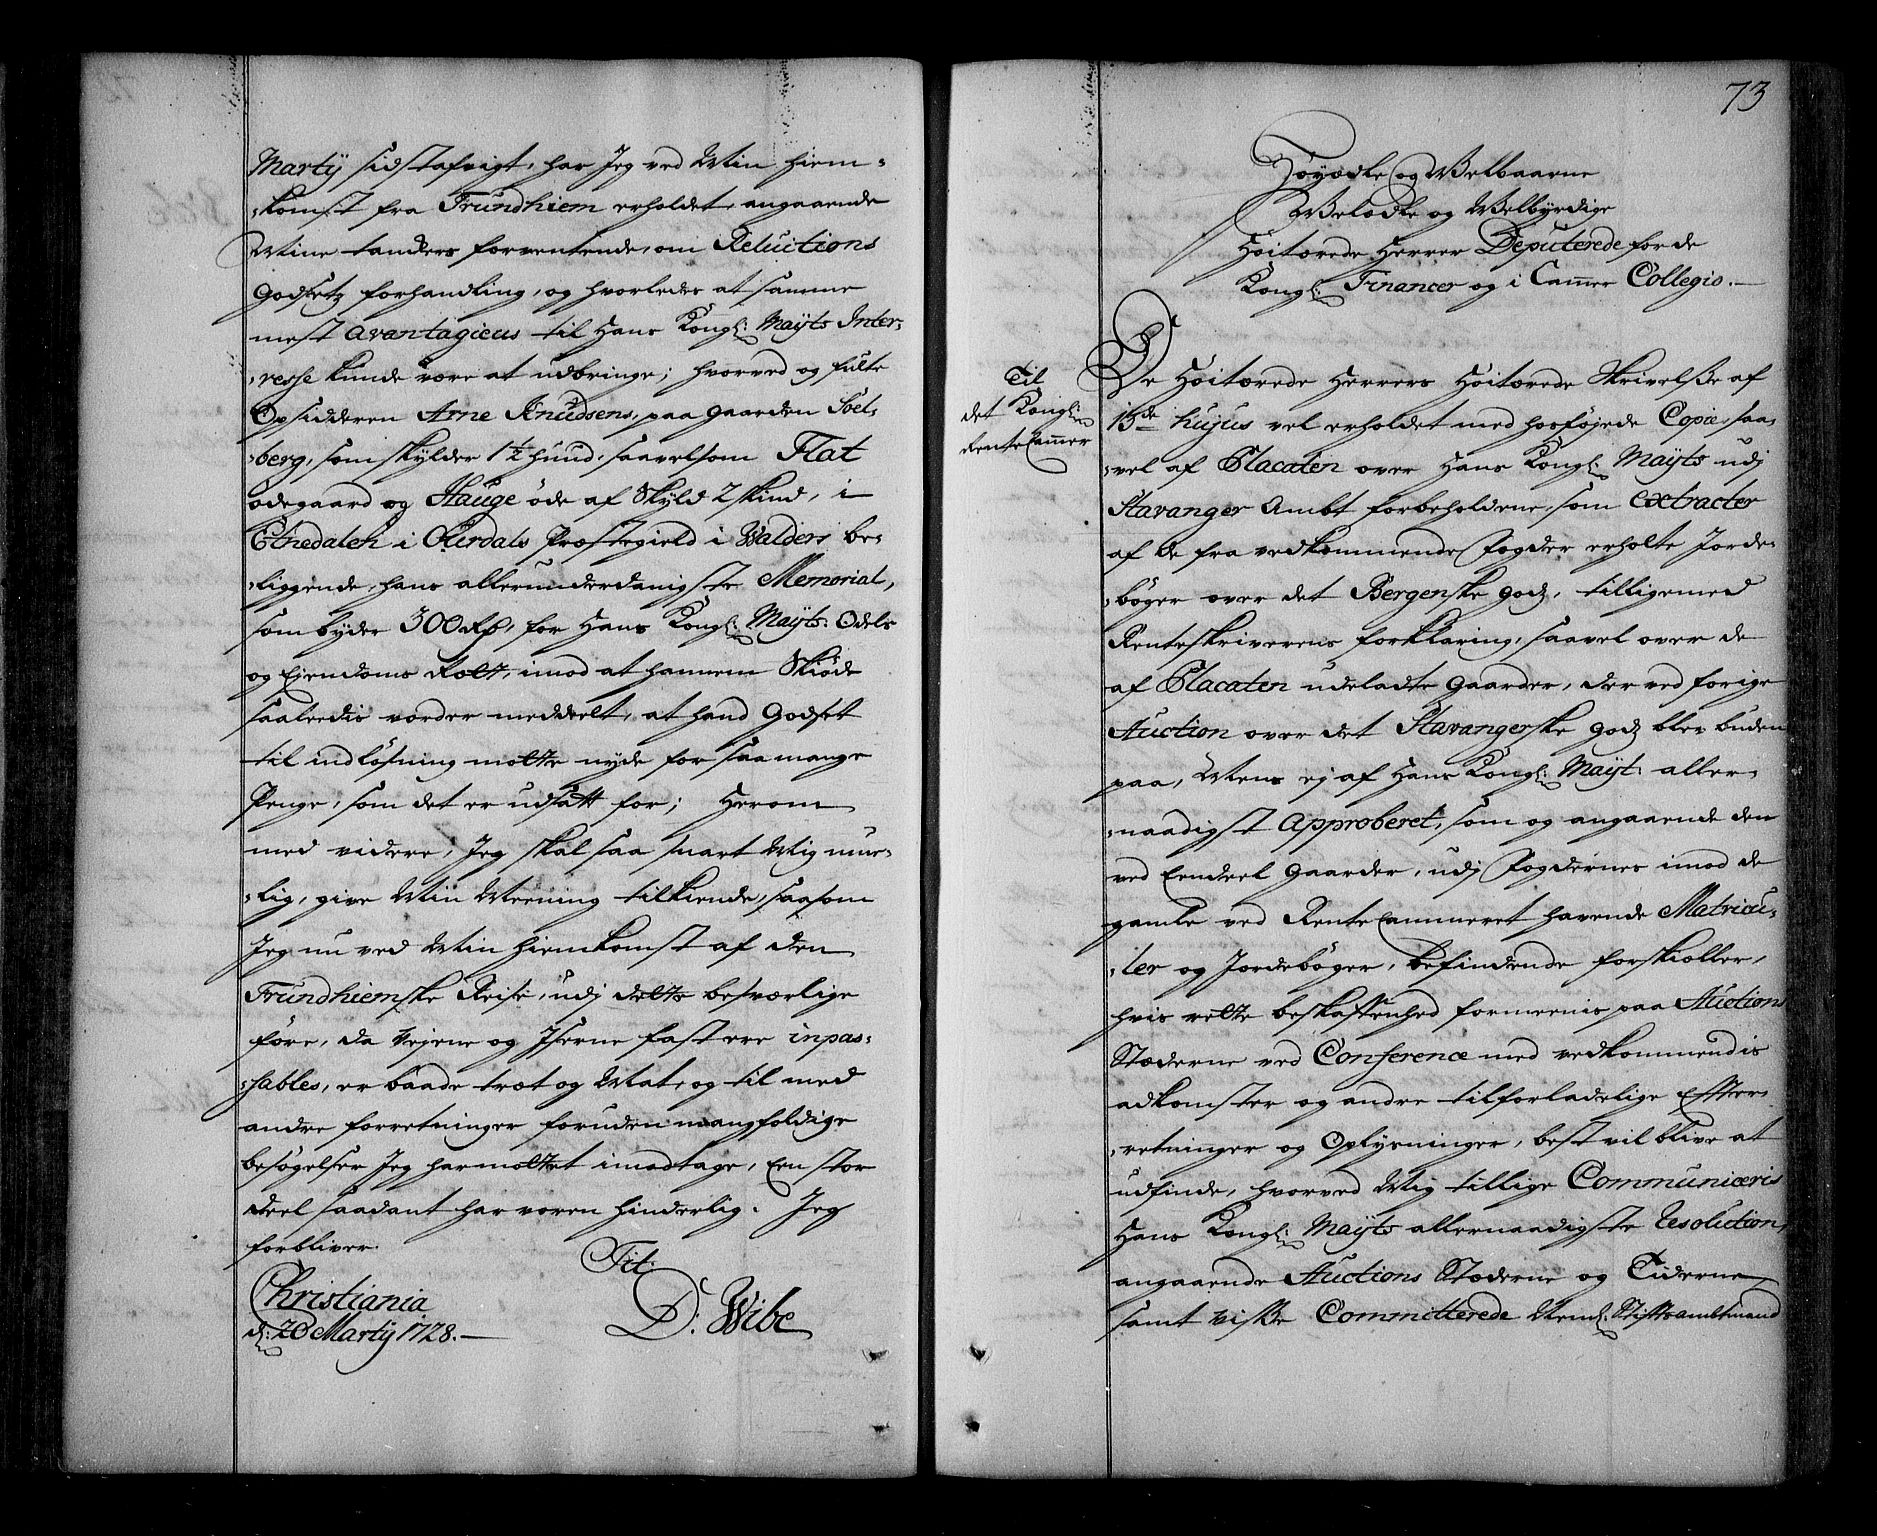 Martÿ sidstafvigt, har Jeg ved Min Hiem-
-komst fra Trundhiem erholdet, angaaende
Mine tanckers forventende, om Reluctions
Godsetz forhandling, og hvorledes at samme
mest avantagieus til Hans Kongl: Maÿts Inter-
-resse kunde være at udbringe; hvorved og fulte
Opsidderen Arne Knudsens, paa gaarden Soel-
-berg, som skylder 1½ huud, saavelsom Flat
ødegaard og Hauge øde af Skyld 2 skind, i
Etnedalen i Ourdals Præstegield i Walders be-
-liggende, hans allerunderdanigste Memorial,
som byder 300 Rdr, for Hans Kongl: Maÿts: Odels
og Ejendoms Rætt, imod at hannem Skiøde
saaleedis vorder meddeelt, at hand Godset
til indløsning motte nyde for saa mange
Penge, som det er udsatt for; Herom
med videre, Jeg skal saa snart Mig mue-
-lig, give Min Meening tilkiende, saasom
Jeg nu ved Min Hiemkomst af den
Trundhiemske Reise, udj dette besværlige
føre, da Vejene og Iserne fast ere inpas-
-sables, er baade træt og Mat, og til med
andre forretninger foruden mangfoldige
besøgelser Jeg har mottet imodtage, Een stor
deel saadant har væren hinderlig. Jeg
forbliver.
Tit:
Christiania
d: 20 Martÿ 1728.
D: Wibe
73
Høyædle og Welbaarne
Welædle og Welbyrdige
Høitærede Herrer Deputerede for de
Kongl: Financer og i Cammer Collegio.
Til
det Kongl:
Rente Cammer
De Høitærede Herrers Høitærede Skrivelse af
13de hujus vel erholdet med hosføjede Copie, saa-
-vel af Placaten over Hans Kongl: Maÿts udj
Stavanger Ambt forbeholdene, som Extracter
af de fra vedkommende Fogder erholte Jorde-
-bøger over det Bergenske Godz, tilligemed
Renteskriverens forklaring, saavel over de
af Placaten udeladte Gaarder, der ved forige
Auction over det Stavangerske Godz blev buden
paa, Mens ej af Hans Kongl: Maÿt: aller-
-naadigst Approberet, som og angaaende den
ved Eendeel Gaarder, udj Fogdernes imod de
gamle ved Rente Cammeret havende Matricu-
-ler og Jordebøger, befindende forskioller,
hvis rette beskaffenhed formeenis paa Auctions
Stæderne ved Conference med vedkommendis
adkomster og andre tilforladelige Effter-
-retninger og Oplysninger, best vil blive at
udfinde, hvorved Mig tillige Communiceris
Hans Kongl: Maÿts allernaadigste Resolution,
angaaende Auctions Stæderne og Tiderne,
samt visse Committerede Neml: Stiftsambtmand